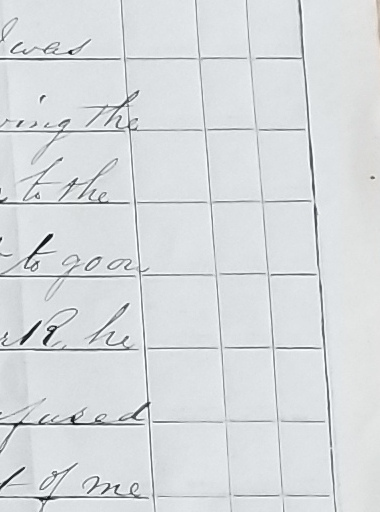 I was
ving the
to the
to goon
rk, he
fused
t of me